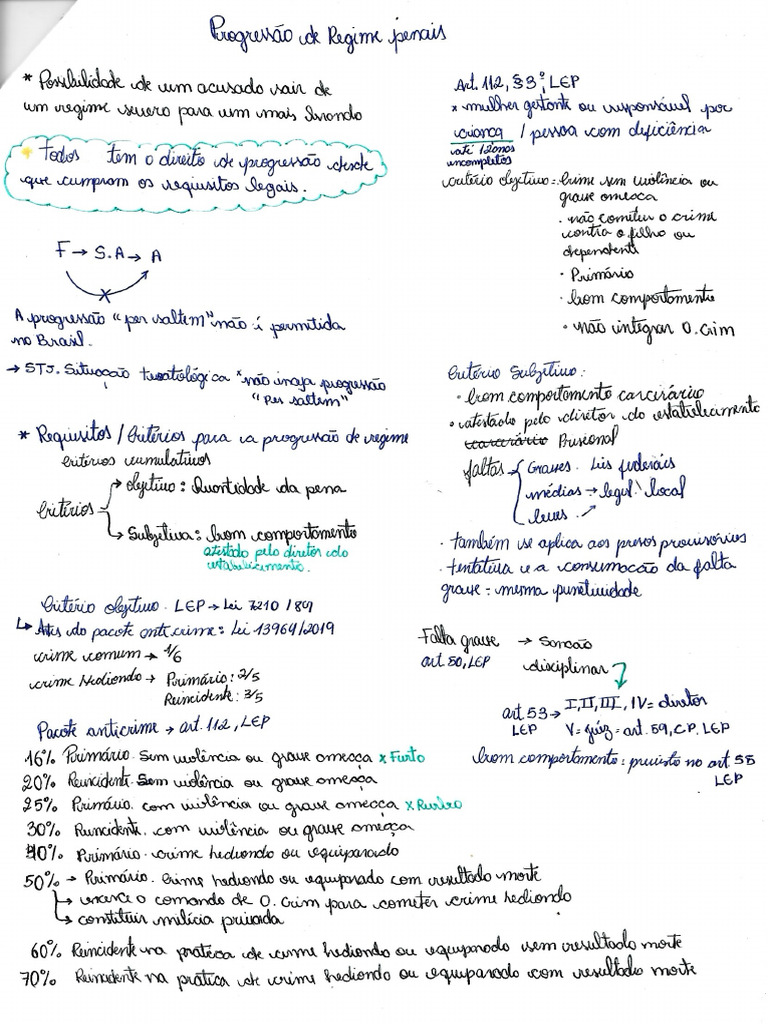 Progressão de Regime penais
* Possibilidade de um acusado sair de
um regime severo para um mais brando
* Todos tem o direito de progressão desde
que cumpram os requisitos legais.
F → S.A → A
x
A progressão "per saltem" não é permitida
no Brasil.
→ STJ. Situação teratológica * não enseja progressão
"Per saltem"
* Requisitos / Critérios para a progressão de regime
Critérios cumulativos
Critérios
→ objetivo: Quantidade da pena
→ Subjetiva: bom comportamento
atestado pelo diretor do
estabelecimento.
Critério objetivo. LEP → Lei 7210 / 84
↳ Antes do pacote anticrime: Lei 13964/2019
crime comum → 1/6
crime Hediondo → Primário: 2/5
Reincidente: 3/5
Pacote anticrime → art. 112, LEP
16% Primário. Sem violência ou grave ameaça x Furto
20% Reincidente. Sem violência ou grave ameaça
25% Primário. com violência ou grave ameaça x Roubo
30% Reincidente. com violência ou grave ameaça
40% Primário. crime hediondo ou equiparado
50% → Primário. Crime hediondo ou equiparado com resultado morte
↳ exerce o comando de O. Crim para cometer crime hediondo
↳ constituir milícia privada
60% Reincidente na prática de crime hediondo ou equiparado sem resultado morte
70% Reincidente na prática de crime hediondo ou equiparado com resultado morte
Art. 112, § 3º, LEP
* mulher gestante ou responsável por
criança / pessoa com deficiência
até 12 anos
incompletos
Critério objetivo = Crime sem violência ou
grave ameaça
· não cometer o crime
contra o filho ou
dependente
· Primário
· bom comportamento
· não integrar O. Crim
Critério Subjetivo:
· bom comportamento carcerário
· atestado pelo diretor do estabelecimento
carcerário Prisional
faltas
Graves. Leis federais
médias → legisl. local
leves.
· também se aplica aos presos provisórios
· tentativa e a consumação da falta
grave = mesma punitividade
Falta grave → Sanção
art. 50, LEP
disciplinar
art. 53 → I, II, III, IV = diretor
LEP V = juiz = art. 59, C.P. LEP
bom comportamento: previsto no art 55
LEP